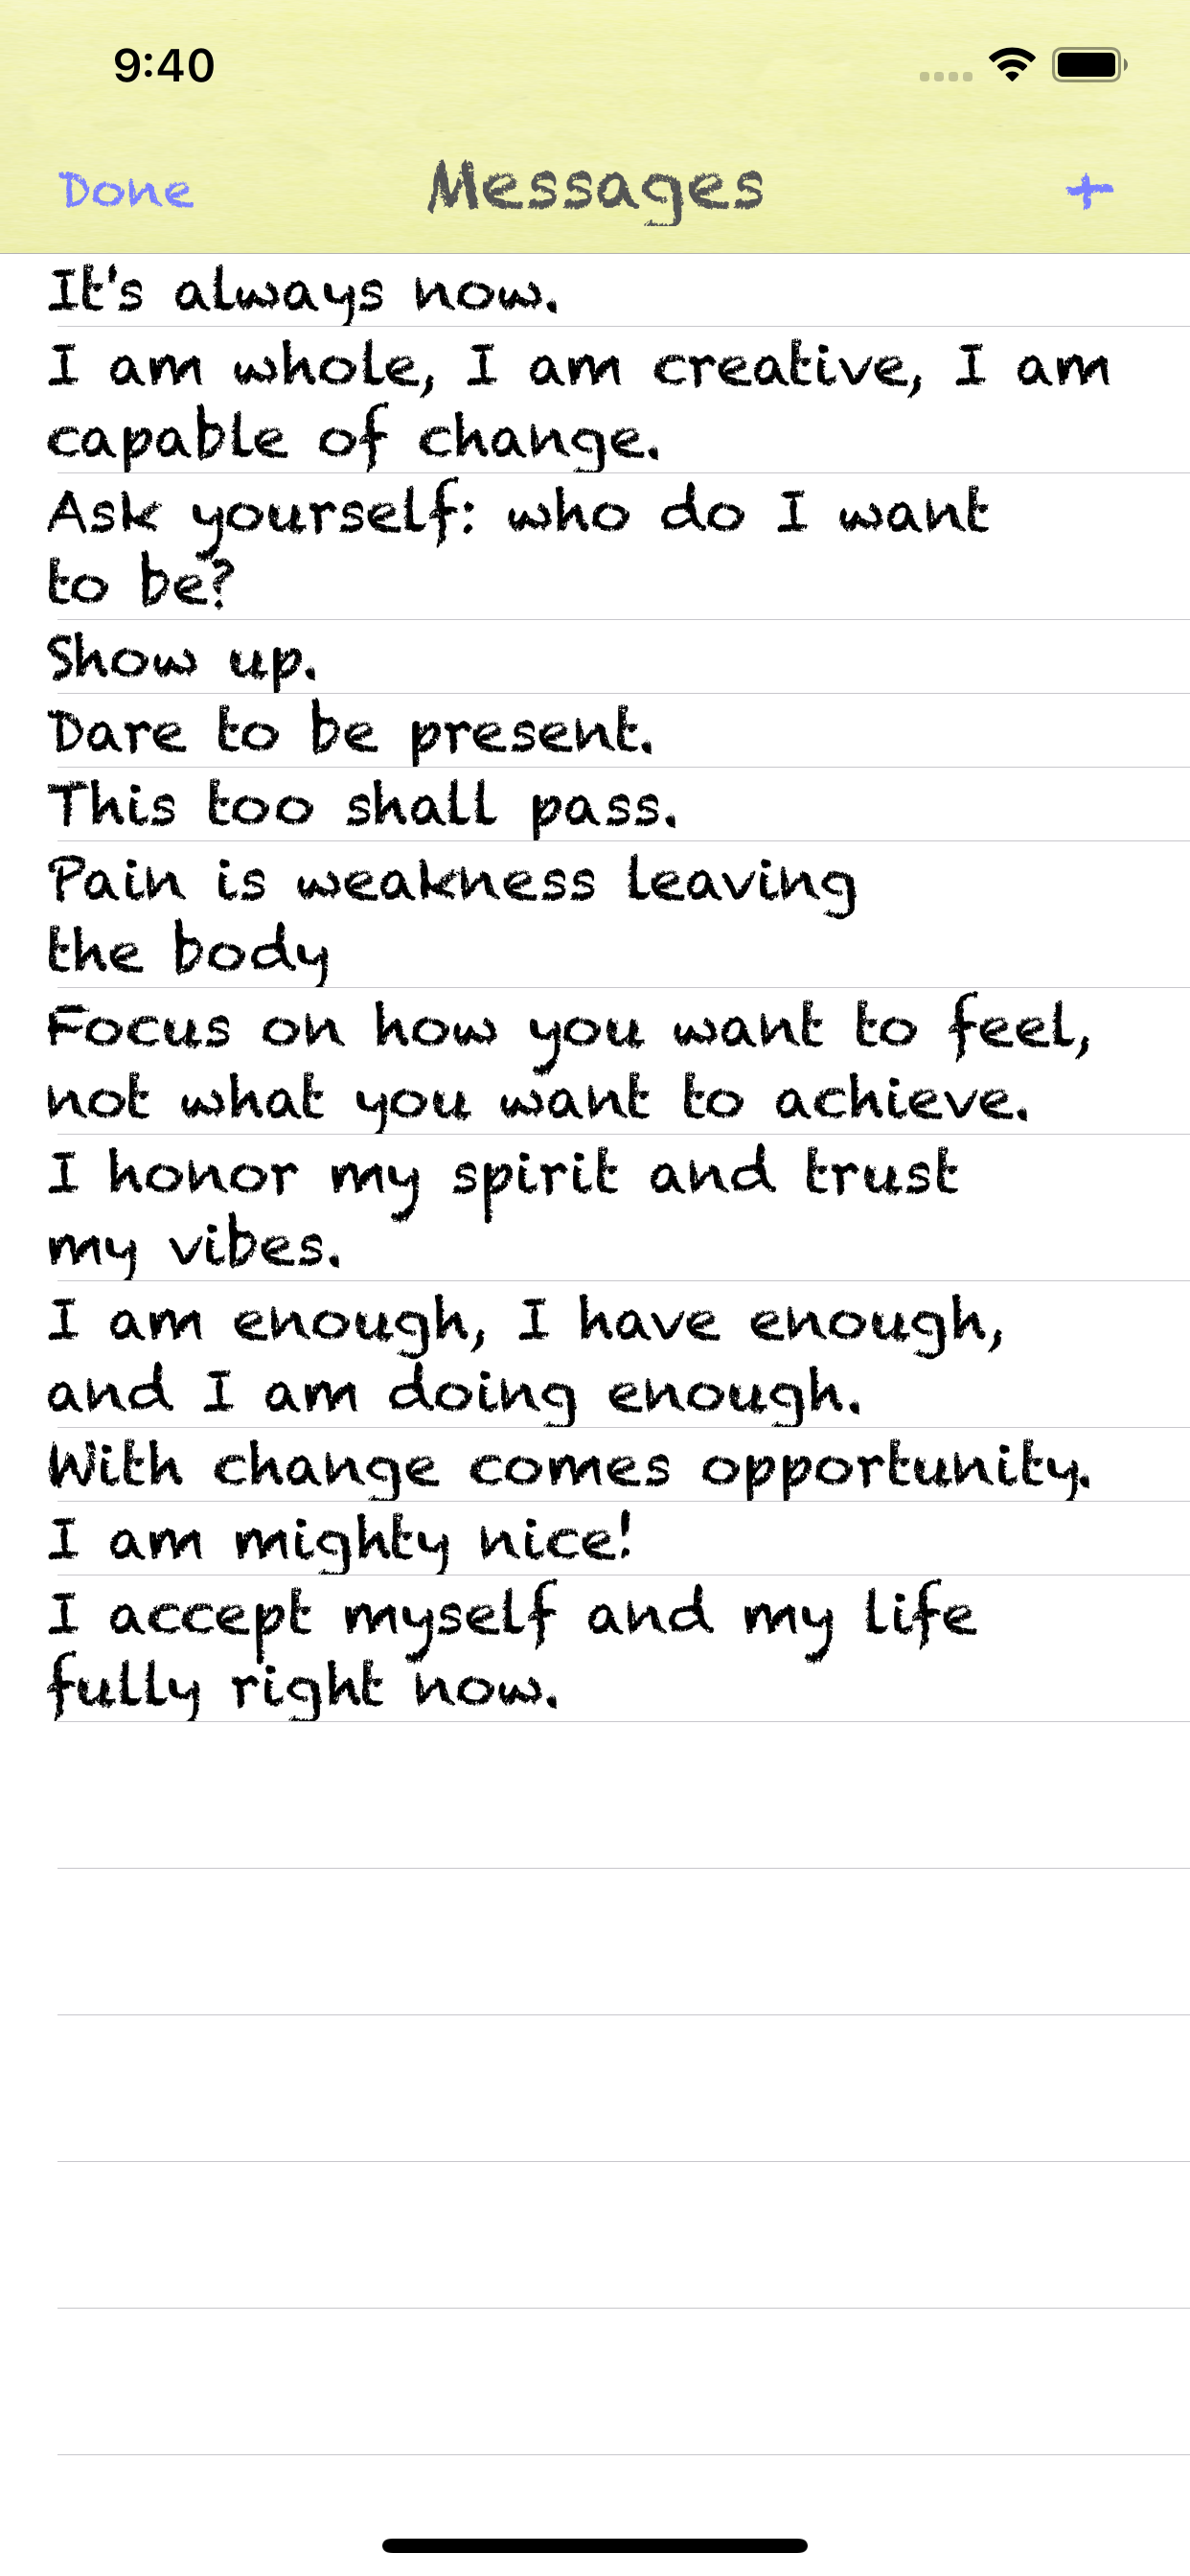 9:40
Done Messages +
It's always now.
I am whole, I am creative, I am
capable of change.
Ask yourself: who do I want
to be?
Show up.
Dare to be present.
This too shall pass.
Pain is weakness leaving
the body
Focus on how you want to feel,
not what you want to achieve.
I honor my spirit and trust
my vibes.
I am enough, I have enough,
and I am doing enough.
With change comes opportunity.
I am mighty nice!
I accept myself and my life
fully right now.